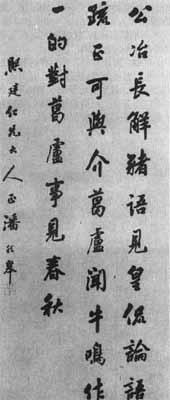 公冶長解豬語見皇侃論語
疏正可與介葛盧聞牛鳴作
一的對葛盧事見春秋
熙建仁先大人正 潘齡皋